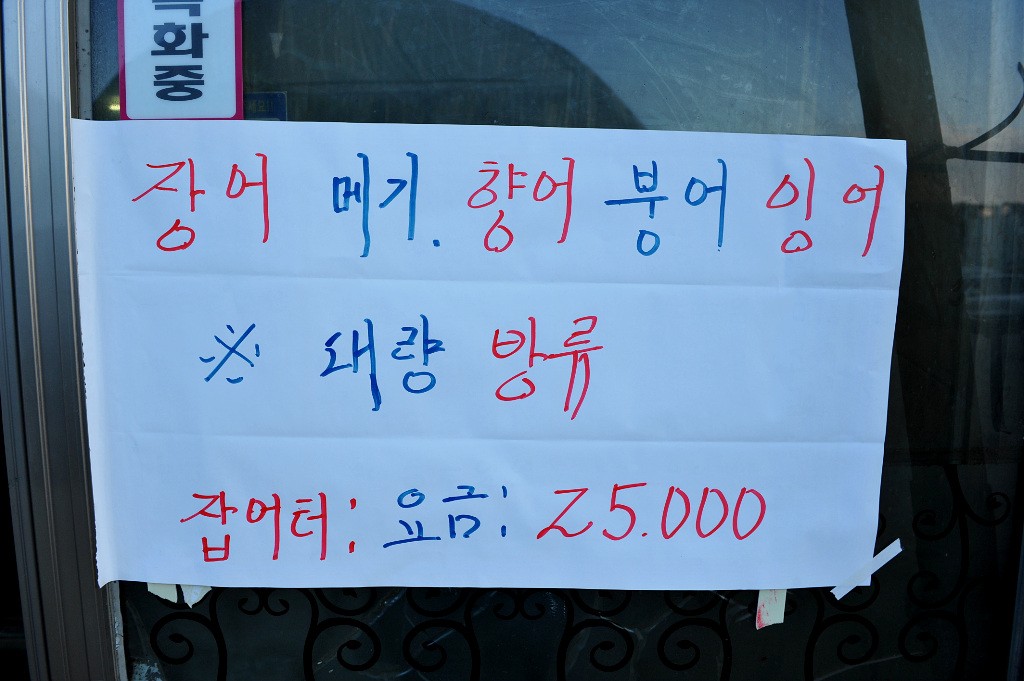 화중
장어 메기. 향어 붕어 잉어
※ 대량 방류
잡어터: 요금: 25.000